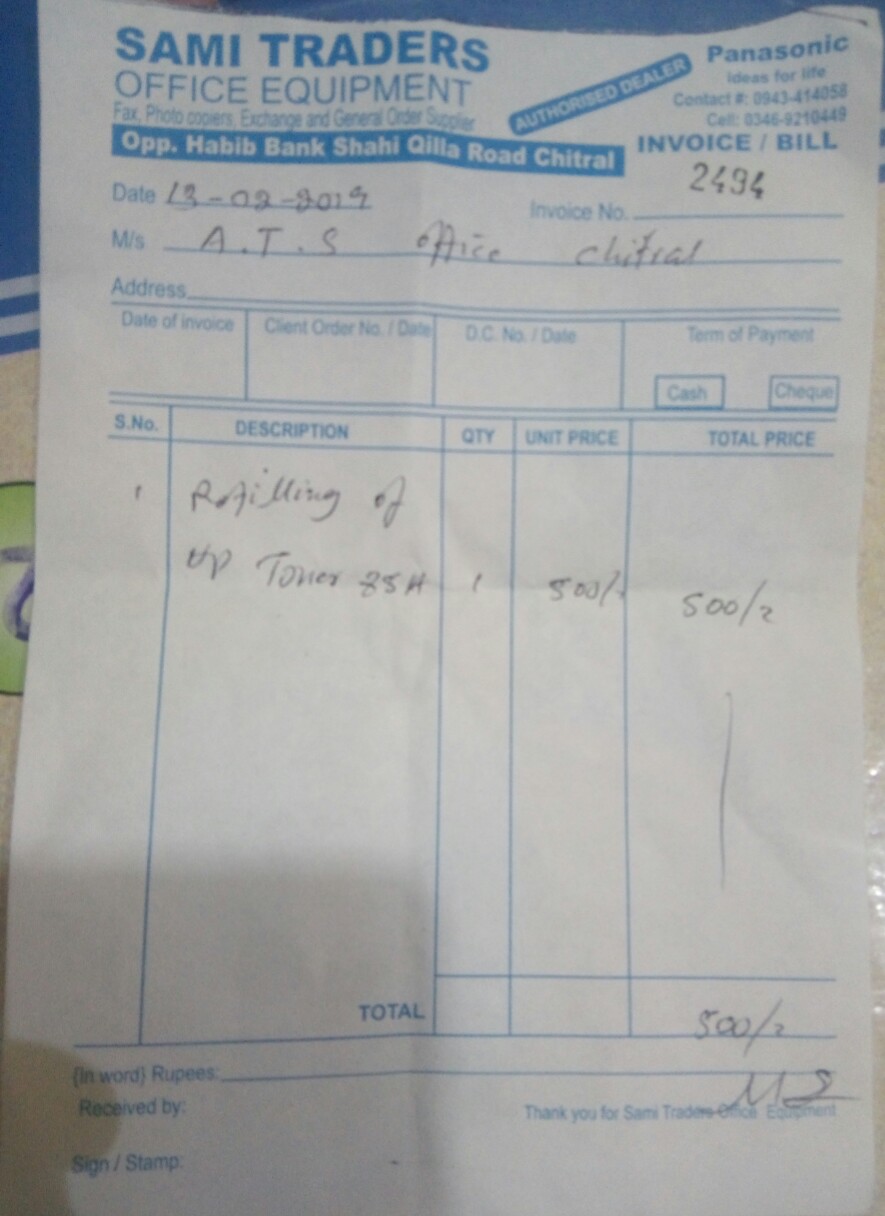 SAMI TRADERS
OFFICE EQUIPMENT
Fax, Photo copiers, Exchange and General Order Supplier
Opp. Habib Bank Shahi Qilla Road Chitral
AUTHORISED DEALER
Panasonic
Ideas for life
Contact #: 0943-414058
Cell: 0346-9210449
INVOICE / BILL
Date 13-02-2019
Invoice No. 2494
M/s A.T.S office Chitral
Address
Date of invoice Client Order No. / Date D.C. No. / Date Term of Payment
Cash Cheque
S.No. DESCRIPTION QTY UNIT PRICE TOTAL PRICE
1 Refilling of
HP Toner 85A 1 500/- 500/-
TOTAL 500/-
{In word} Rupees:
Received by:
Thank you for Sami Traders Office Equipment
Sign / Stamp: